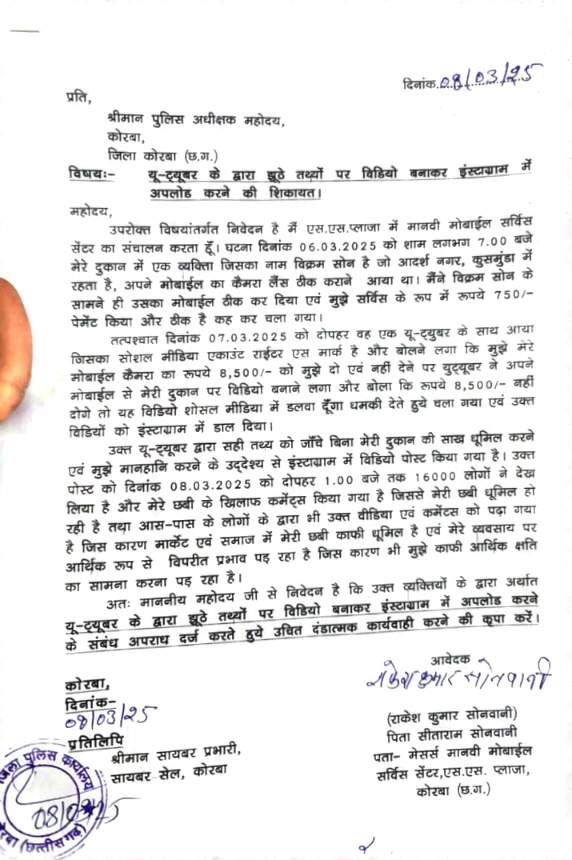 दिनांक 08/03/25
प्रति,
श्रीमान पुलिस अधीक्षक महोदय,
कोरबा,
जिला कोरबा (छ.ग.)
विषयः- यू-ट्यूबर के द्वारा झूठे तथ्यों पर विडियो बनाकर इंस्टाग्राम में
अपलोड करने की शिकायत।
महोदय,
उपरोक्त विषयांतर्गत निवेदन है मैं एस.एस.प्लाजा में मानवी मोबाईल सर्विस
सेंटर का संचालन करता हूँ। घटना दिनांक 06.03.2025 को शाम लगभग 7.00 बजे
मेरे दुकान में एक व्यक्ति जिसका नाम विक्रम सोन है जो आदर्श नगर, कुसमुंडा में
रहता है, अपने मोबाईल का कैमरा लैंस ठीक कराने आया था। मैंने विक्रम सोन के
सामने ही उसका मोबाईल ठीक कर दिया एवं मुझे सर्विस के रूप में रूपये 750/-
पेमेंट किया और ठीक है कह कर चला गया।
तत्पश्चात दिनांक 07.03.2025 को दोपहर वह एक यू-ट्युबर के साथ आया
जिसका सोशल मीडिया एकाउंट राईटर एस मार्क है और बोलने लगा कि मुझे मेरे
मोबाईल कैमरा का रूपये 8,500/- को मुझे दो एवं नहीं देने पर युट्यूबर ने अपने
मोबाईल से मेरी दुकान पर विडियो बनाने लगा और बोला कि रूपये 8,500/- नहीं
दोगे तो यह विडियो शोसल मीडिया में डलवा दूँगा धमकी देते हुये चला गया एवं उक्त
विडियों को इंस्टाग्राम में डाल दिया।
उक्त यू-ट्यूबर द्वारा सही तथ्य को जाँचे बिना मेरी दुकान की साख धूमिल करने
एवं मुझे मानहानि करने के उद्देश्य से इंस्टाग्राम में विडियो पोस्ट किया गया है। उक्त
पोस्ट को दिनांक 08.03.2025 को दोपहर 1.00 बजे तक 16000 लोगों ने देख
लिया है और मेरे छबी के खिलाफ कमेंट्स किया गया है जिससे मेरी छबी धूमिल हो
रही है तथा आस-पास के लोगों के द्वारा भी उक्त वीडिया एवं कमेंटस को पढ़ा गया
है जिस कारण मार्केट एवं समाज में मेरी छबी काफी धूमिल है एवं मेरे व्यवसाय पर
आर्थिक रूप से विपरीत प्रभाव पड़ रहा है जिस कारण भी मुझे काफी आर्थिक क्षति
का सामना करना पड़ रहा है।
अतः माननीय महोदय जी से निवेदन है कि उक्त व्यक्तियों के द्वारा अर्थात
यू-ट्यूबर के द्वारा झूठे तथ्यों पर विडियो बनाकर इंस्टाग्राम में अपलोड करने
के संबंध अपराध दर्ज करते हुये उचित दंडात्मक कार्यवाही करने की कृपा करें।
आवेदक
राकेश कुमार सोनवानी
(राकेश कुमार सोनवानी)
पिता सीताराम सोनवानी
पता- मेसर्स मानवी मोबाईल
सर्विस सेंटर,एस.एस. प्लाजा,
कोरबा (छ.ग.)
कोरबा,
दिनांक-
08/03/25
प्रतिलिपि
श्रीमान सायबर प्रभारी,
सायबर सेल, कोरबा
जिला पुलिस कार्यालय
कोरबा (छत्तीसगढ़)